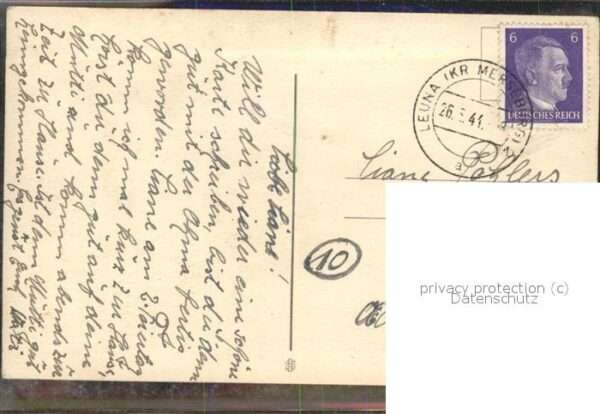 Liebe Liane!
Will dir wieder eine schöne
Karte schreiben, bist du denn
gut mit der Oma fertig
geworden. Liane am 2. Feiertag
komm ich mal kurz zur
hörst du denn gut auf deine
Mutti und komm abends zur
Zeit zu Hause. Ist denn Mutti gut
heimgekommen.
6 6
DEUTSCHES REICH
LEUNA (KR MERSEBURG)
26. 5. 41.
a
Liane
10
privacy protection (c)
Datenschutz